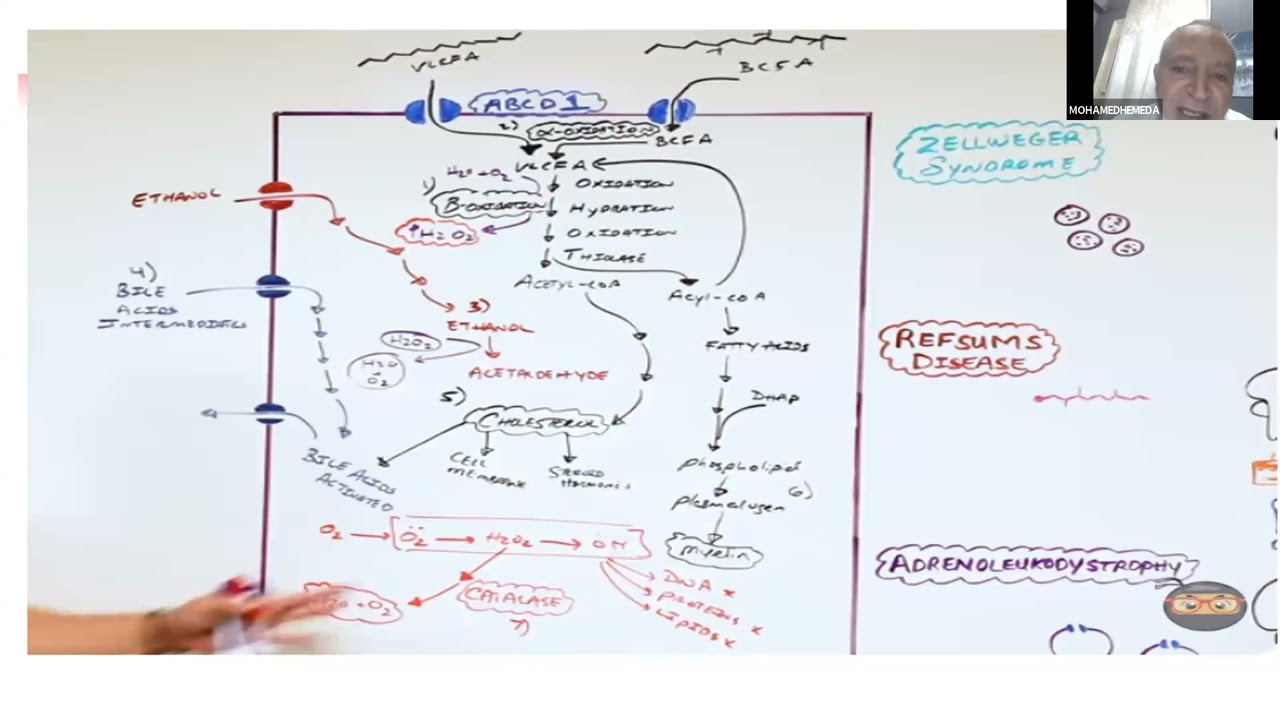 MOHAMEDHEMEDA
VLCFA
BCFA
ABCD1
2) α-OXIDATION
BCFA
VLCFA
H2O + O2
OXIDATION
1) B-OXIDATION
HYDRATION
↑H2O2
OXIDATION
THIOLASE
ACETYL-COA
ACYL-COA
ETHANOL
4)
BILE
ACIDS
INTERMEDIATES
3)
ETHANOL
H2O2
H2O
+
O2
ACETALDEHYDE
FATTY ACIDS
DHAP
5)
CHOLESTEROL
CELL
MEMBRANE
STEROID
HORMONES
BILE ACIDS
ACTIVATED
phospholipid
6)
plasmalogen
Myelin
O2 → O2 → H2O2 → OH
DNA x
PROTEINS x
LIPIDS x
CATALASE
7)
H2O + O2
ZELLWEGER
SYNDROME
REFSUMS
DISEASE
ADRENOLEUKODYSTROPHY